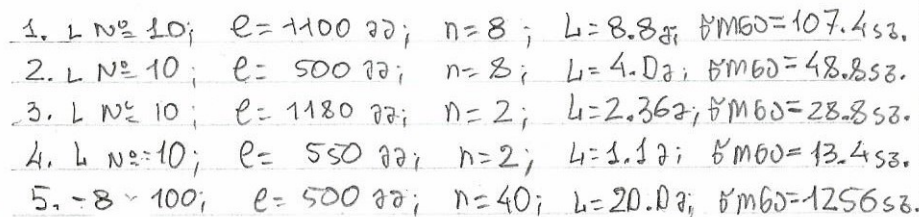 1. L № 10; ℓ= 1100 მმ; n=8; L=8.8მ; წონა=107.4კგ.
2. L № 10; ℓ= 500 მმ; n=8; L=4.0მ; წონა=48.8კგ.
3. L № 10; ℓ= 1180 მმ; n=2; L=2.36მ; წონა=28.8კგ.
4. L №=10; ℓ= 550 მმ; n=2; L=1.1მ; წონა=13.4კგ.
5. -8 100; ℓ= 500 მმ; n=40; L=20.0მ; წონა=1256კგ.